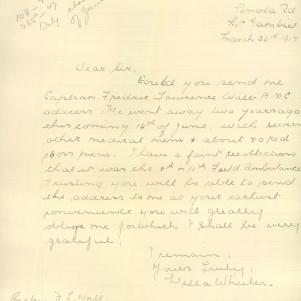 Penola Rd
Mt Gambier
March 20th 1917
Dear Sir,
Could you send me
Captian Fredric Laurence Wall A.M.C
address. He went away two years ago
this coming 14th of June, with seven
other medical men & about
men. I have a faint recollection
that it was the 8th or 11th Field Ambulance
Trusting you will be able to send
the address to me at your earliest
convenience you will greatly
oblige me for which I shall be very
grateful.
I remain,
Yours Truly,
Wheeler.
F. L. Wall.